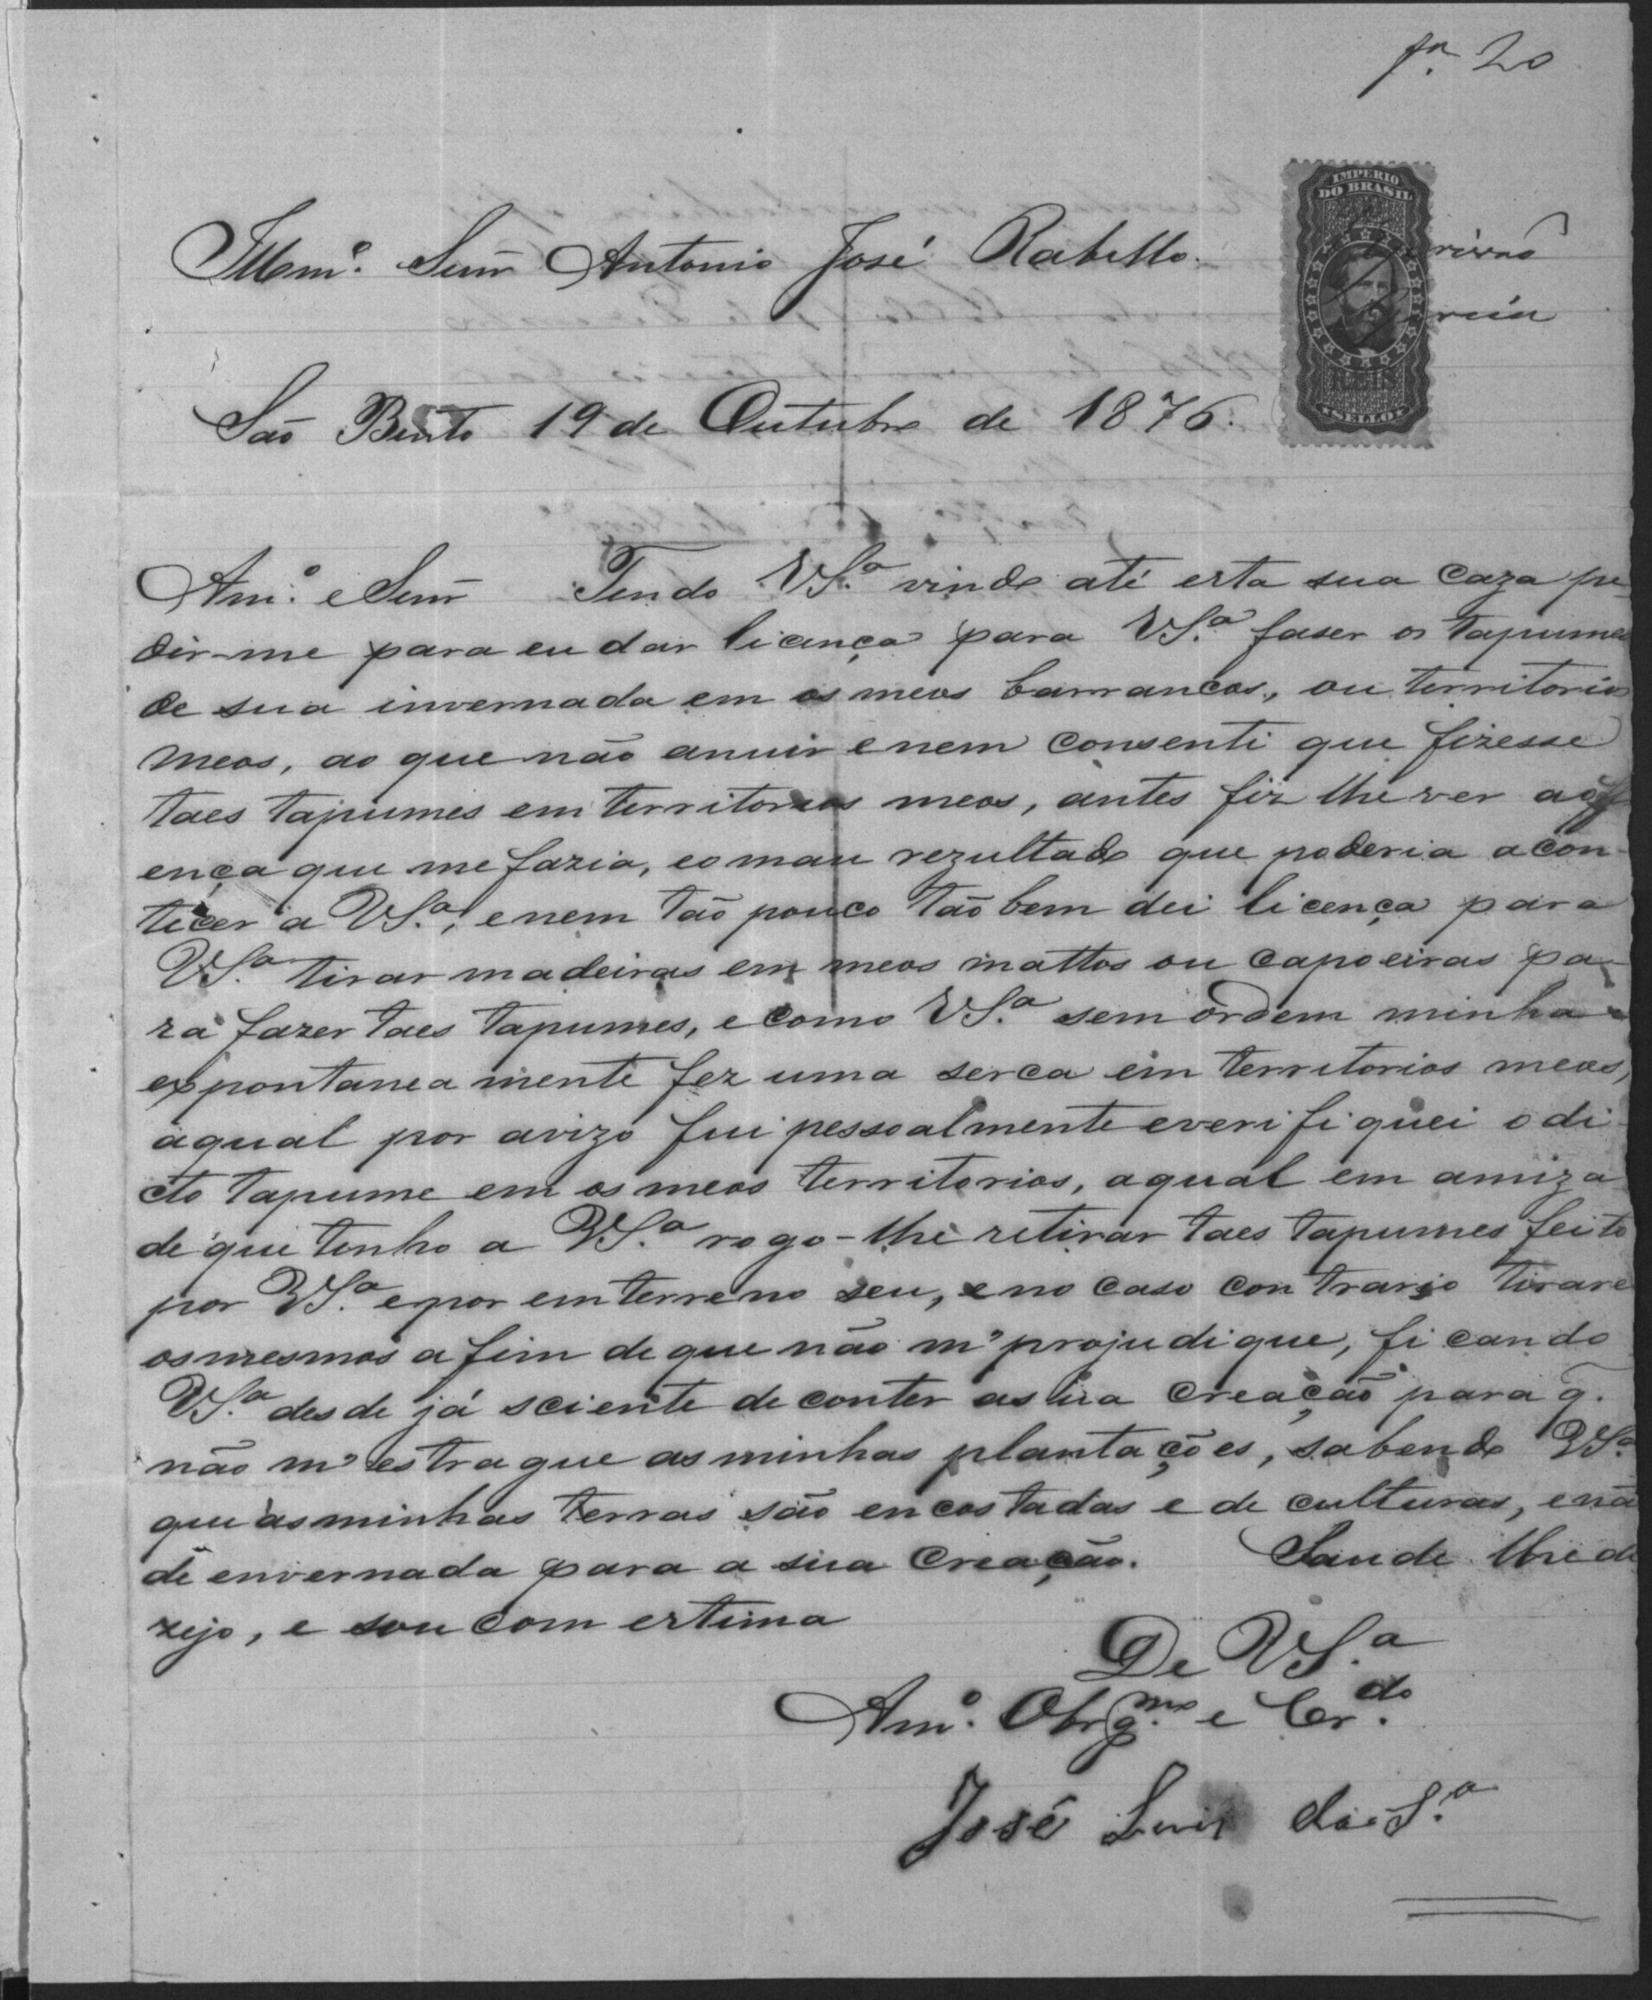 fª 20
IMPERIO
DO BRASIL
REIS
SELLO
Illmº. Senr̃ Antonio José Rabello.
São Bento 19 de Outubro de 1876.
Amº. e Senr̃ Tendo VSª. vindo até esta sua caza pe
dir-me para eu dar licança para VSª. faser os tapumes
de sua invernada em os meos barrancos, ou territorios
meos, ao que não anuir e nem consenti que fizesse
taes tapumes em territorios meos, antes fiz lhe ver a off
ença que me fazia, e o mau rezultado que poderia acon-
tecer a VSª., e nem tão pouco tão bem dei licença para
VSª. tirar madeiras em meos mattos ou capoeiras pa-
ra fazer taes tapumes, e como VSª. sem ordem minha
expontanea mente fez uma serca em territorios meos,
aqual por avizo fui pessoalmente e verifiquei o di
cto tapume em os meos territorios, aqual em amiza
de que tenho a VSª. rogo-lhe retirar taes tapumes feito
por VSª. e por em terreno seu, e no caso contrario tirare
os mesmos a fim de que não m' projudique, ficando
VSª. desde já sciente de conter a sua creação para q̃.
não m' estrague as minhas plantações, sabendo VSª.
que as minhas terras são encostadas e de culturas, e não
de envernada para a sua creação. Saude lhe de
zejo, e sou com estima
De VSª.
Amº. Obrgmº. e Crdº.
José Luis da Sª.